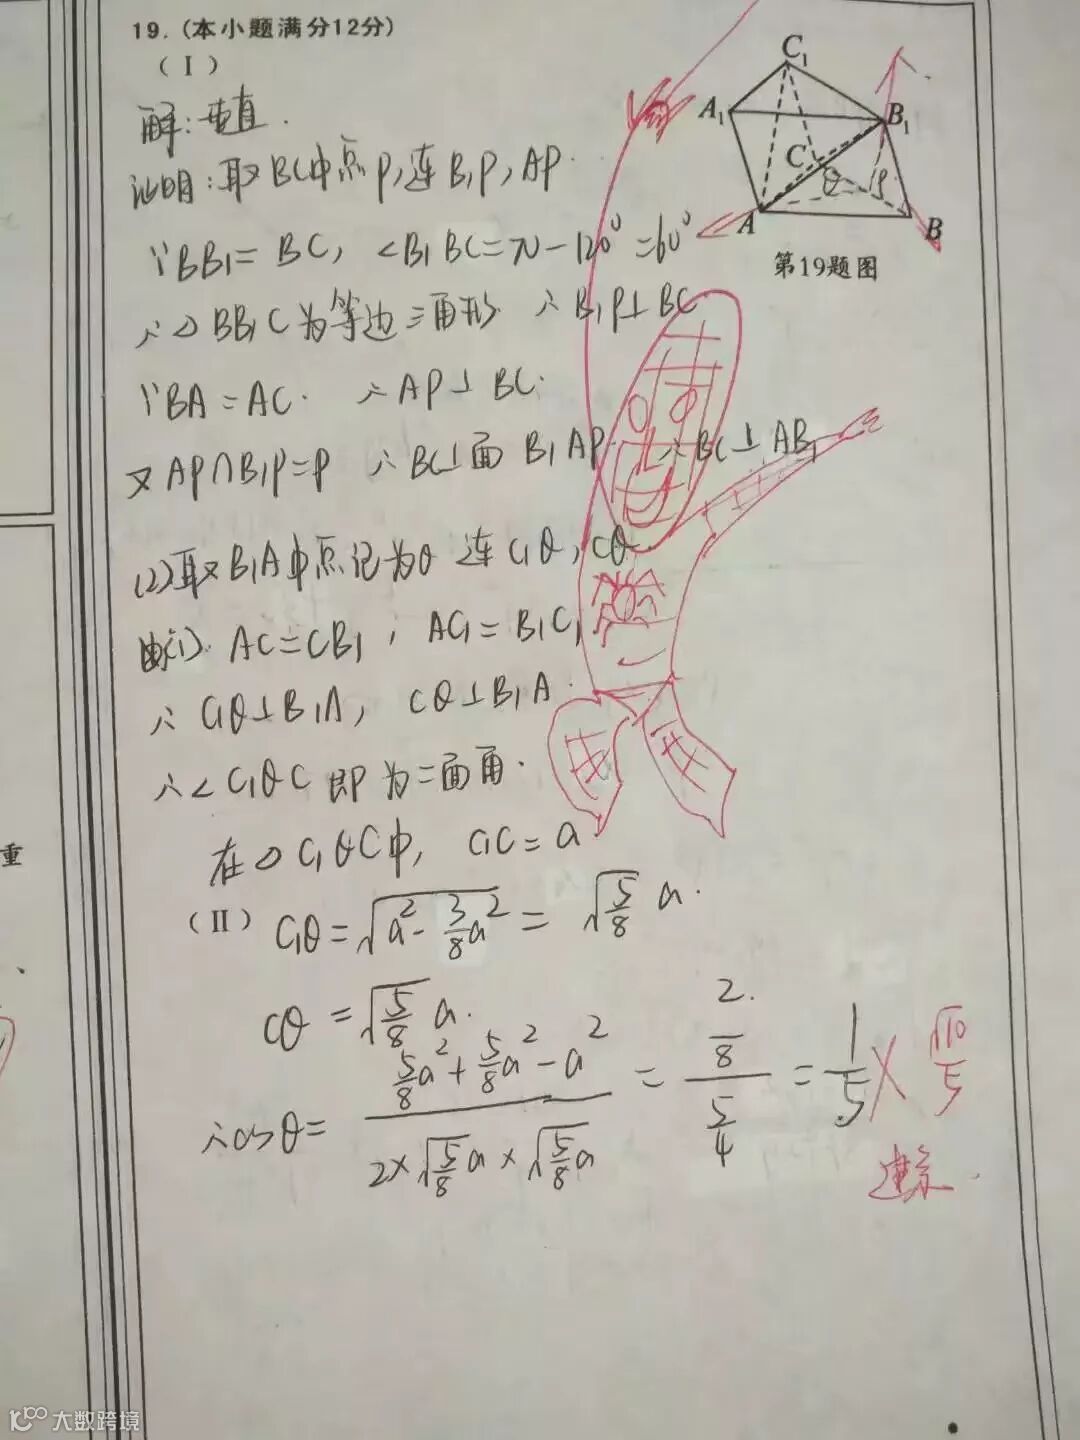 19.(本小题满分12分)
(Ⅰ)
解:垂直.
证明:取BC中点P,连B₁P,AP.
∵BB₁=BC, ∠B₁BC=π-120°=60°
∴△BB₁C为等边三角形 ∴B₁P⊥BC
∵BA=AC. ∴AP⊥BC.
又AP∩B₁P=P ∴BC⊥面B₁AP. ∴BC⊥AB₁
(2)取B₁A中点记为θ 连C₁θ,Cθ
由(1) AC=CB₁, AC₁=B₁C₁
∴C₁θ⊥B₁A, Cθ⊥B₁A.
∴∠C₁θC即为二面角.
在△C₁θC中, C₁C=a
(Ⅱ) C₁θ=√(a²-3/8a²)=√(5/8) a.
Cθ=√(5/8) a.
∴cosθ=(5/8a²+5/8a²-a²)/(2×√(5/8)a×√(5/8)a)=(2/8)/(5/4)=1/5 × √10/5
建系.
C₁
A₁
B₁
C
θ
P
A
B
第19题图
重
大数跨境